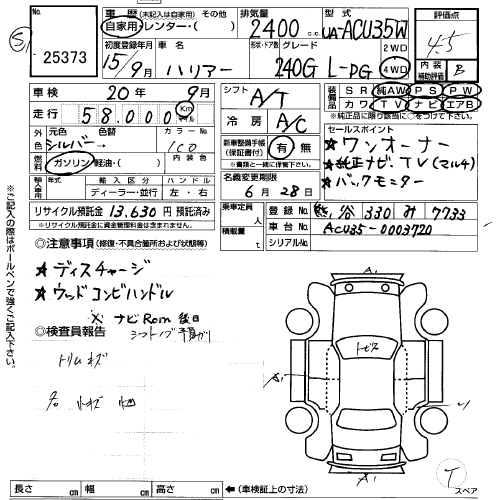 No. 25373
車歴 (未記入は自家用) その他
自家用・レンター・( )
排気量 2400 cc
型式 UA-ACU35W
評価点 4.5
初度登録年月 15/9月
車名 ハリアー
形状・ドア数 グレード 240G L-PG
2WD
4WD
内装補助評価 B
車検 20年 9月
シフト A/T
装備品 SR 純AW PS PW
カワ TV ナビ エアB
*純正品に限り○をつけて下さい。
走行 58,000 Km マイル
冷房 A/C
外色 元色 色替 カラーNo
シルバー→ 1C0
新車整備手帳(保証書付) 有・無
*書類と一緒に保管して下さい。
セールスポイント
★ワンオーナー
★純正ナビ、TV(マルチ)
★バックモニター
燃料 ガソリン・軽油・( ) 内装色
名義変更期限 6月 28日
輸入車 年式 輸入区分 ハンドル
ディーラー・並行 左・右
リサイクル預託金 13,630円 預託済み
*リサイクル預託金に資金管理料金は含まれません。
乗車定員 人
積載量 t
登録No 熊谷 330 み 7733
車台No ACU35-0003720
シリアルNo
※ご記入の際はボールペンで強くご記入下さい。
◎注意事項 (修復・不具合箇所および状態等)
★ディスチャージ
★ウッドコンビハンドル
※ナビRom後日
◎検査員報告
トリムキズ
A1
トビス
A1
A1
長さ cm 幅 cm 高さ cm ←(車検証上の寸法)
T スペア